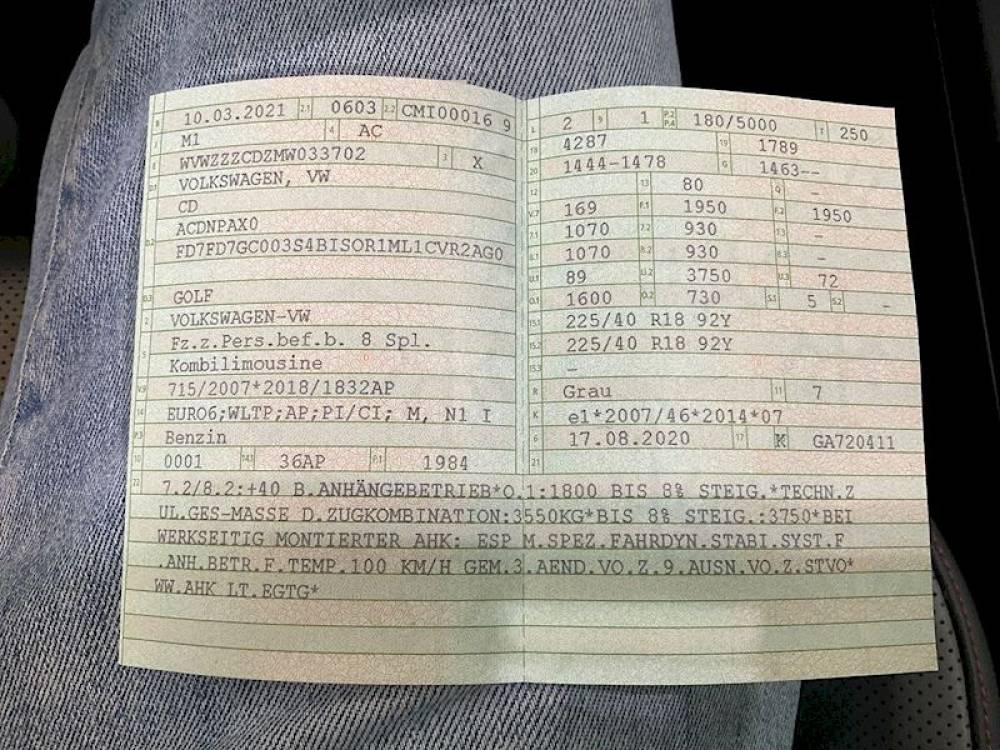 B 10.03.2021 2.1 0603 2.2 CMI00016 9
J M1 4 AC
E WVWZZZCDZMW033702 3 X
D.1 VOLKSWAGEN, VW
CD
D.2 ACDNPAX0
FD7FD7GC003S4BISOR1ML1CVR2AG0
D.3 GOLF
2 VOLKSWAGEN-VW
5 Fz.z.Pers.bef.b. 8 Spl.
Kombilimousine
V.9 715/2007*2018/1832AP
14 EURO6;WLTP;AP;PI/CI; M, N1 I
P.3 Benzin
10 0001 14.1 36AP P.1 1984
L 2 9 1 P.2 P.4 180/5000 T 250
18 4287 19 1789
20 1444-1478 G 1463--
12 13 80 Q -
V.7 169 F.1 1950 F.2 1950
7.1 1070 7.2 930 7.3 -
8.1 1070 8.2 930 8.3 -
U.1 89 U.2 3750 U.3 72
O.1 1600 O.2 730 S.1 5 S.2 -
15.1 225/40 R18 92Y
15.2 225/40 R18 92Y
15.3 -
R Grau 11 7
K e1*2007/46*2014*07
6 17.08.2020 17 K 16 GA720411
21
22 7.2/8.2:+40 B.ANHÄNGEBETRIEB*O.1:1800 BIS 8% STEIG.*TECHN.Z
UL.GES-MASSE D.ZUGKOMBINATION:3550KG*BIS 8% STEIG.:3750*BEI
WERKSEITIG MONTIERTER AHK: ESP M.SPEZ.FAHRDYN.STABI.SYST.F
.ANH.BETR.F.TEMP.100 KM/H GEM.3.AEND.VO.Z.9.AUSN.VO.Z.STVO*
WW.AHK LT.EGTG*